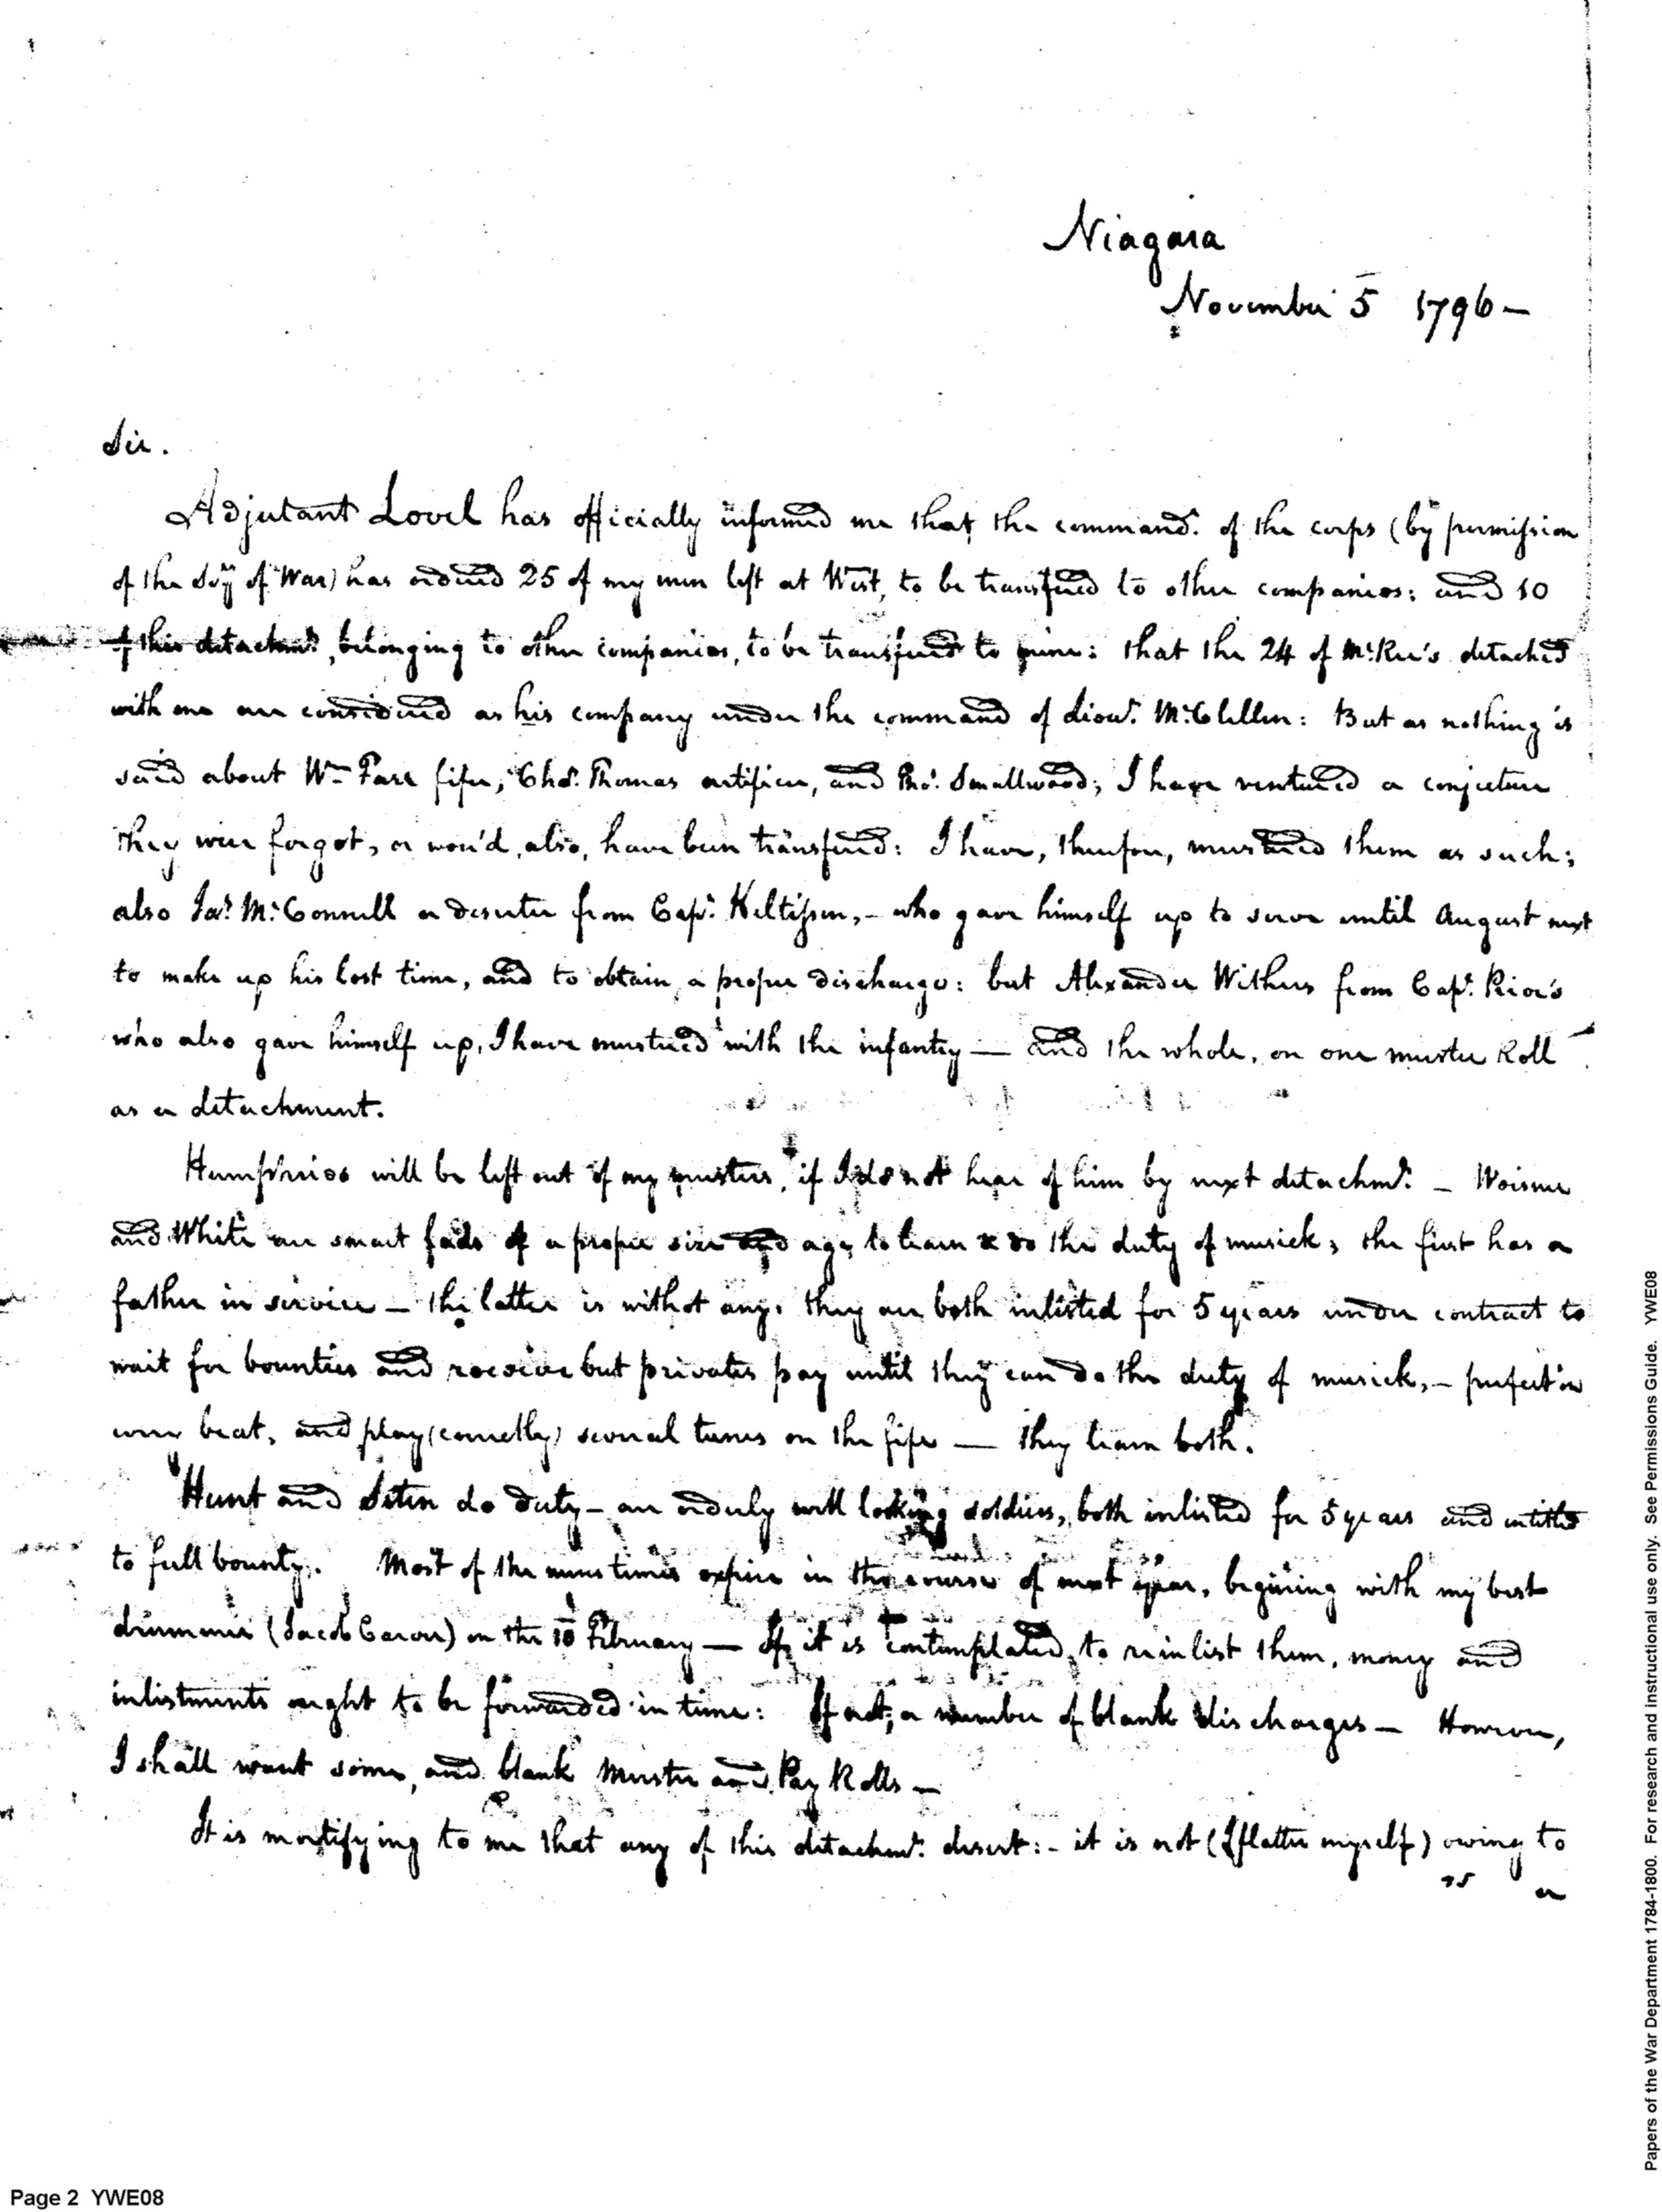 Niagara
November 5 1796 —
Sir.
Adjutant Lovel has officially informed me that the command.t of the corps (by permission
of the Sy of War) has ordered 25 of my men left at West, to be transfered to other companies; and 10
of this detachm.t, belonging to other companies, to be transfered to mine: that the 24 of McRee's detached
with me are considered as his company under the command of Lieu.t McClellen: But as nothing is
said about Wm Farr fifer, Cha.s Thomas artificer, and Tho.s Smallwood; I have ventured a conjecture
they were forgot, or wou'd, also, have been transfered: I have, therefore, mustered them as such;
also Ja.s McConnell a deserter from Cap.t — who gave himself up to serve until August next
to make up his lost time, and to obtain a proper discharge: but Alexander Withers from Cap.t Rice's
who also gave himself up, I have mustered with the infantry — and the whole, on one muster Roll
as a detachment.
Humphries will be left out of my musters, if I do not hear of him by next detachm.t — Woirner
and White are smart lads of a proper size and age, to learn & do the duty of musick; the first has a
father in service — the latter is without any. they are both inlisted for 5 years under contract to
wait for bounties and receive but privates pay until they can do the duty of musick, —
beat, and play (correctly) several tunes on the fife — they learn both.
Hunt and do duty — are orderly well looking soldiers, both inlisted for 5 years and intitled
to full bounty. Most of the mens times expire in the course of next year, begining with my best
drummer (Jacob Carver) on the 10 February — If it is contemplated, to reinlist them, money and
inlistments ought to be forwarded in time: If not, a number of blank discharges — However,
I shall want some, and blank Muster and Pay Rolls —
It is mortifying to me that any of this detachm.t desert: - it is not (I flatter myself) owing to
a
Papers of the War Department 1784-1800. For research and instructional use only. See Permissions Guide. YWE08
Page 2 YWE08